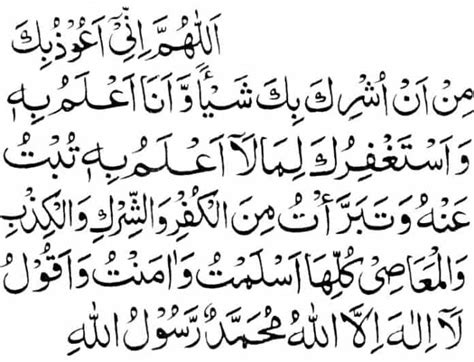 اَللّٰهُمَّ اِنِّیْۤ اَعُوْذُ بِكَ
مِنْ اَنْ اُشْرِكَ بِكَ شَیْأً وَّاَنَا اَعْلَمُ بِهٖ
وَاَسْتَغْفِرُكَ لِمَا لَاۤ اَعْلَمُ بِهٖ تُبْتُ
عَنْهُ وَتَبَرَّأْتُ مِنَ الْكُفْرِ وَالشِّرْكِ وَالْكِذْبِ
وَالْمَعَاصِیْ كُلِّهَا اَسْلَمْتُ وَاٰمَنْتُ وَاَقُوْلُ
لَاۤ اِلٰهَ اِلَّا اللّٰهُ مُحَمَّدٌ رَّسُوْلُ اللّٰهِ